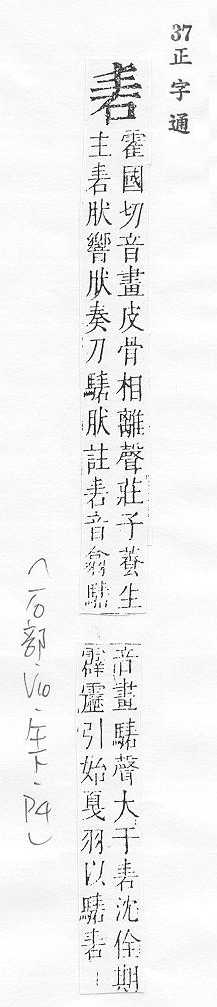 37正字通
砉
霍國切音畫皮骨相離聲莊子養生
主砉肰響肰奏刀騞肰註砉音翕騞
音畫騞聲大于砉沈佺期
霹靂引始戛羽以騞砉
(石部、V10、午下、P4)